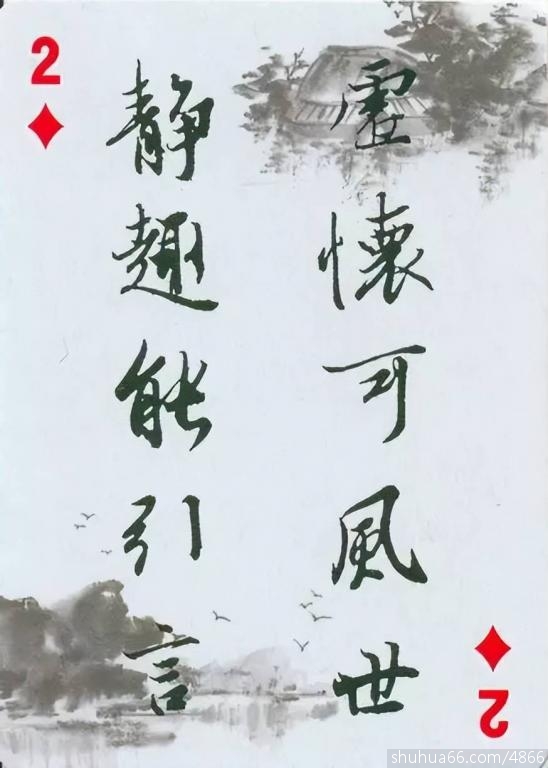 2
虚懷可風世
静趣能引言
2
shuhua66.com/4866